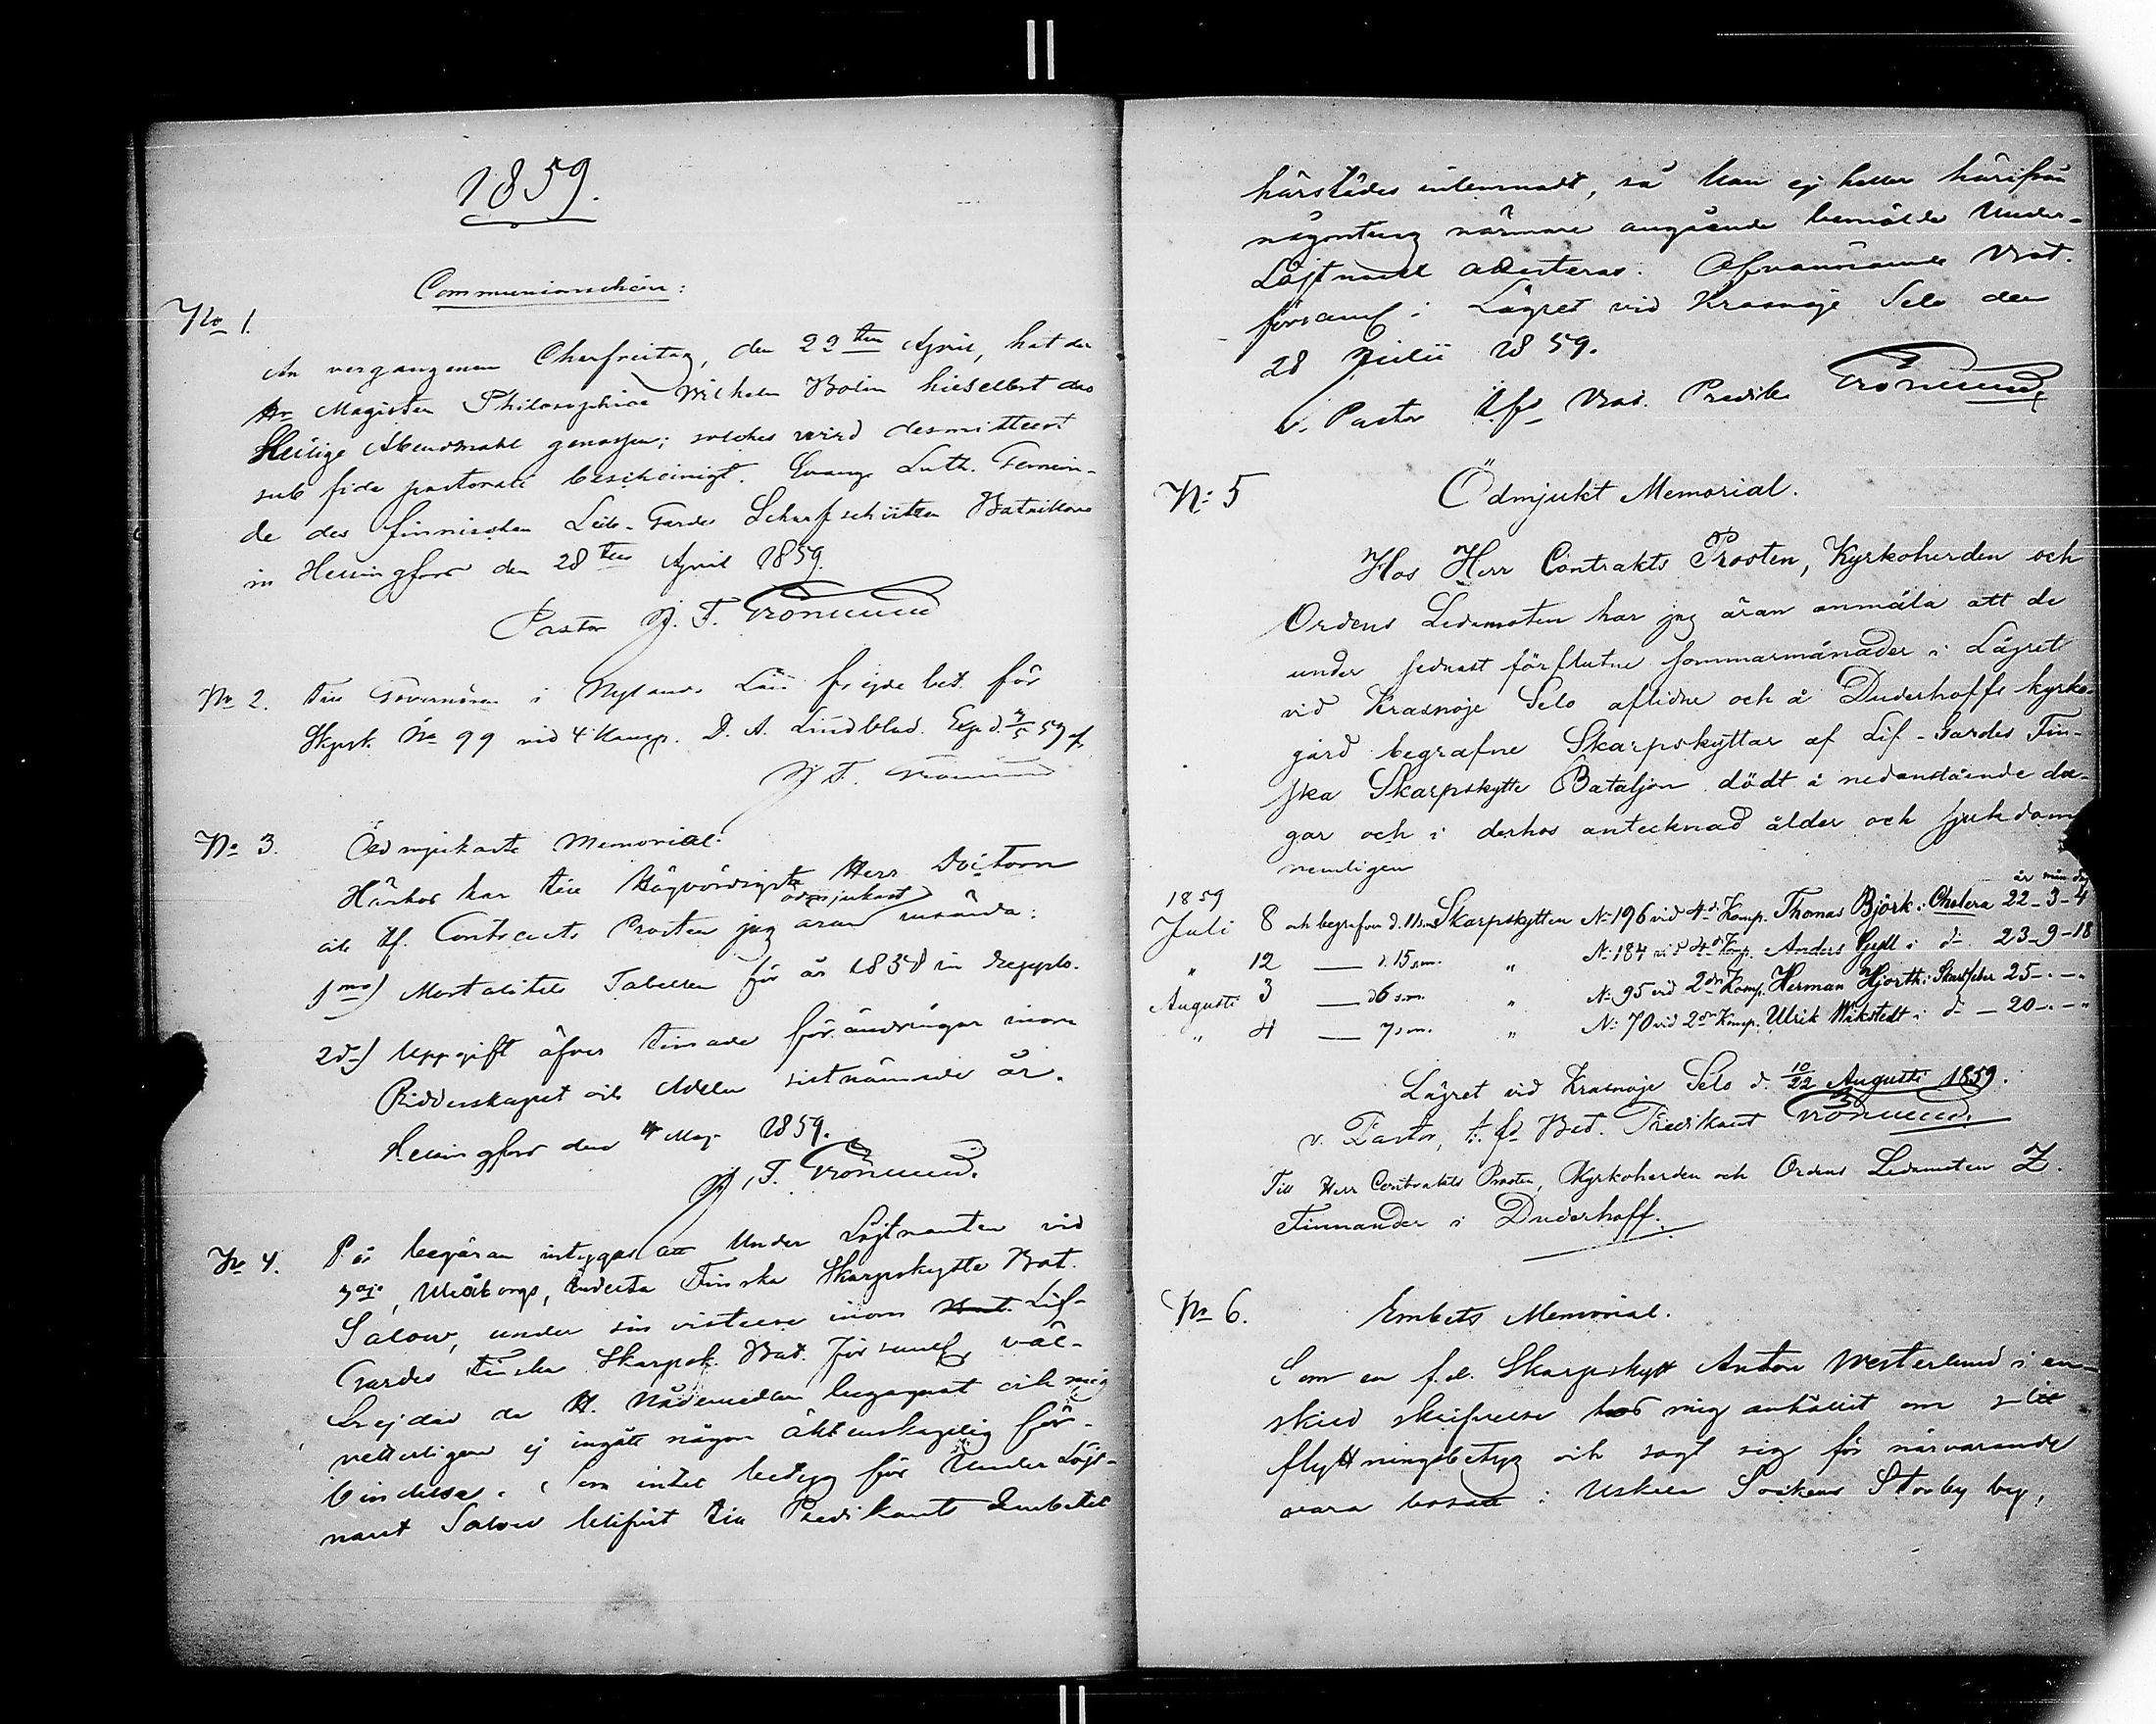 1859.
Communionschein:
No 1.
Am vergangenen Charfreitag, den 22ten April, hat der
Hr Magister Philosophiae Wilhelm Bolin hieselbst das
Heilige Abendmahl genossen; solches wird desmittelst
sub fide pastorali bescheinigt. Evang. Luth. Gemein-
de des finnischen Leib-Garde Scharfschützen Bataillons
in Helsingfors den 28ten April 1859.
Pastor J. F. Grönlund
No 2. Till Guvernören i Nylands Län frejdebet. för
Skpsk. No 99 vid 4 Komp. D. A. Lindblad. Exp. d. 59 af
J. F. Grönlund
No 3. Ödmjukaste Memorial.
Härhos har till Högvördigste Herr Doctorn
och Tf. Contracts Prosten jag äran ödmjukast insända:
1mo) Mortalitets Tabellen för år 1858 in duplo.
2do) Uppgift öfver timade förändringar inom
Ridderskapet och Adeln sistnämnde år.
Helsingfors den 4 Maj 1859.
J. F. Grönlund.
No 4. På begäran intygas att Under Löjtnanten vid
3dje, Uleåborgs, Indelta Finska Skarpskytte Bat.
Salow, under sin vistelse inom Lif-
Gardes Finska Skarpsk. Bat. församl. väl-
frejdad de H. Nådemedlen begagnat och mig
vetterligen ej ingått någon äktenskaplig för-
bindelse. Som intet betyg för Under Löjt-
nant Salow blifvit till Predikants Embetet
härstädes inlemnadt, så kan ej heller härifrån
någonting närmare angående bemälde Under-
Löjtnant attesteras. Ofvannämnde Bat.
församl. i Lägret vid Krasnoje Selo den
28 Julii 1859.
v. Pastor tf. Bat. Predik. Grönlund.
No 5 Ödmjukt Memorial.
Hos Herr Contrakts Prosten, Kyrkoherden och
Ordens Ledamoten har jag äran anmäla att de
under sednast förflutne sommarmånader i Lägret
vid Krasnoje Selo aflidne och å Duderhoffs kyrko-
gård begrafne Skarpskyttar af Lif-Gardes Fin-
ska Skarpskytte Bataljon dödt å nedanstående da-
gar och i derhos antecknad ålder och sjukdom
nemligen
1859 år mån dag
Juli 8 och begrafven d. 11 s.m. Skarpskytten No 196 vid 4de Komp. Thomas Björk i Cholera 22-3-4
" 12 — d. 15 s.m. " No 184 vid 4de Komp. Anders Gyll i do 23-9-18
Augusti 3 — d 6 s.m. " No 95 vid 2dra Komp. Herman Hjorth i 25-.-.
" 4 — 7 s.m. " No 70 vid 2dra Komp. Ulrik Wikstedt i do — 20-.-"
Lägret vid Krasnoje Selo d. 10/22 Augusti 1859.
v. Pastor, t. fd Bat. Predikant Grönlund.
Till Herr Contrakts Prosten, Kyrkoherden och Ordens Ledamoten Z.
Finnander i Duderhoff.
No 6. Embets Memorial.
Som en f.d. Skarpskytt Anton Westerlund i en-
skild skrifvelse hos mig anhållit om sitt
flyttningsbetyg och sagt sig för närvarande
vara bosatt i Uskela Socken Storby by,